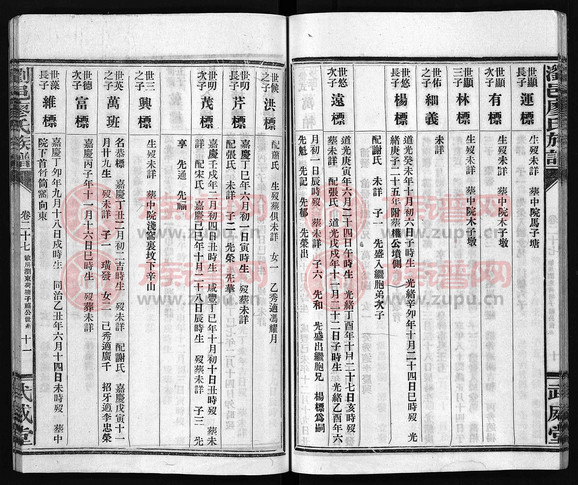 瀏邑廖氏族譜
武威堂
世顯 長子 運標
生歿未詳 葬中院馬子塅
世顯 次子 有標
生歿未詳 葬中院木子墩
世顯 三子 林標
生歿未詳 葬中院木子墩
世佑 之子 細義
未詳
世悠 長子 楊標
道光癸未年十月初六亥時生 光緒辛卯年十月二十四日巳時歿 光
緒庚子二十五年附葬糗公墳側
配謝氏 未詳 子一 先盛入繼胞弟次子
世悠 次子 遠標
道光庚寅年六月二十四日午時生 光緒丁酉年十月二十七日亥時歿
配謝氏 道光戊戌年十二月二十二日子時生 光緒乙酉年六
月初一日辰時歿 葬未詳 子六 先和 先盛出繼胞兄 楊標為嗣
先魁 先記 先郁 先榮出
世候 之子 洪標
配謝氏 生歿葬俱未詳 女一 乙秀適馮耀月
世明 長子 芹標
嘉慶己巳年六月初一日寅時生 歿葬未詳
配張氏 未詳 子二 先榮 先華
世明 次子 茂標
嘉慶甲戌年二月初四丑時生 咸豐丁巳年十月初十日丑時歿 葬未
詳 配宋氏 嘉慶己卯年十月二十八日辰時生 歿葬未詳 子三 先
享 先通 先嗣
世三 之子 興標
生歿未詳 葬中院淺窩裏坟下辛山
世英 之子 萬班
名恭標 嘉慶丁丑二月初二吉時生 歿葬未詳 配謝氏 嘉慶戊寅十一
月廿九生 歿未詳 子一 璜發 女二 巳秀適廣千 招牙適李忠榮
世德 次子 富標
嘉慶丙子年十一月十六日巳時生 歿葬未詳
世藻 長子 維標
嘉慶丁卯年九月十八日戌時生 同治乙丑年六月十四日未時歿 葬中
院下首竹筒窩向東
瀏邑廖氏族譜
卷二十七
十一
武威堂
宗譜网
www.zupu.cn